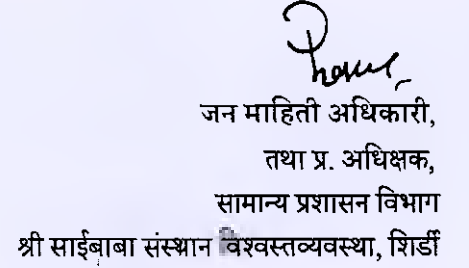 जन माहिती अधिकारी,
तथा प्र. अधिक्षक,
सामान्य प्रशासन विभाग
श्री साईबाबा संस्थान विश्वस्तव्यवस्था, शिर्डी